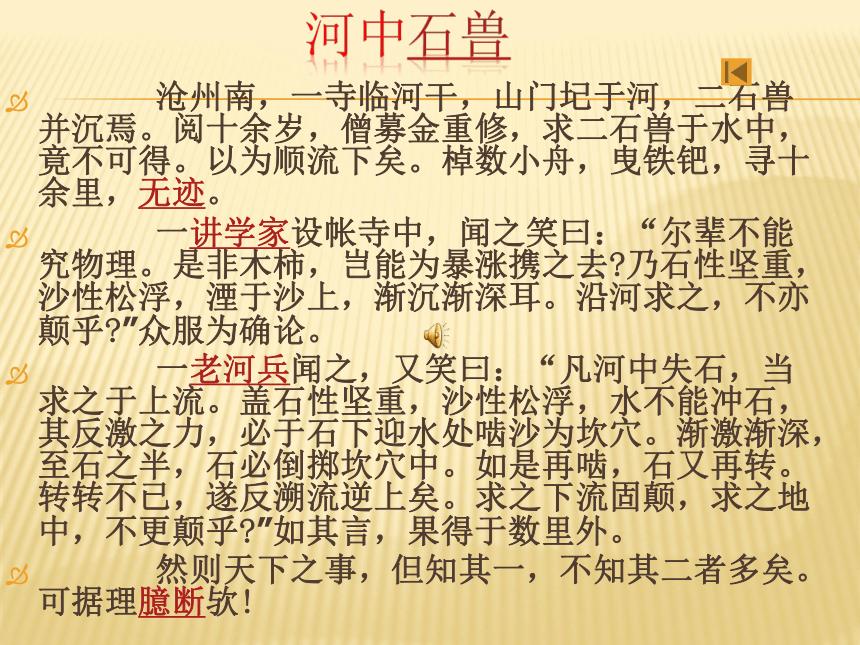 河中石兽
沧州南，一寺临河干，山门圮于河，二石兽
并沉焉。阅十余岁，僧募金重修，求二石兽于水中，
竟不可得。以为顺流下矣。棹数小舟，曳铁钯，寻十
余里，无迹。
一讲学家设帐寺中，闻之笑曰：“尔辈不能
究物理。是非木杮，岂能为暴涨携之去?乃石性坚重，
沙性松浮，湮于沙上，渐沉渐深耳。沿河求之，不亦
颠乎?”众服为确论。
一老河兵闻之，又笑曰：“凡河中失石，当
求之于上流。盖石性坚重，沙性松浮，水不能冲石，
其反激之力，必于石下迎水处啮沙为坎穴。渐激渐深，
至石之半，石必倒掷坎穴中。如是再啮，石又再转。
转转不已，遂反溯流逆上矣。求之下流固颠，求之地
中，不更颠乎?”如其言，果得于数里外。
然则天下之事，但知其一，不知其二者多矣。
可据理臆断欤!